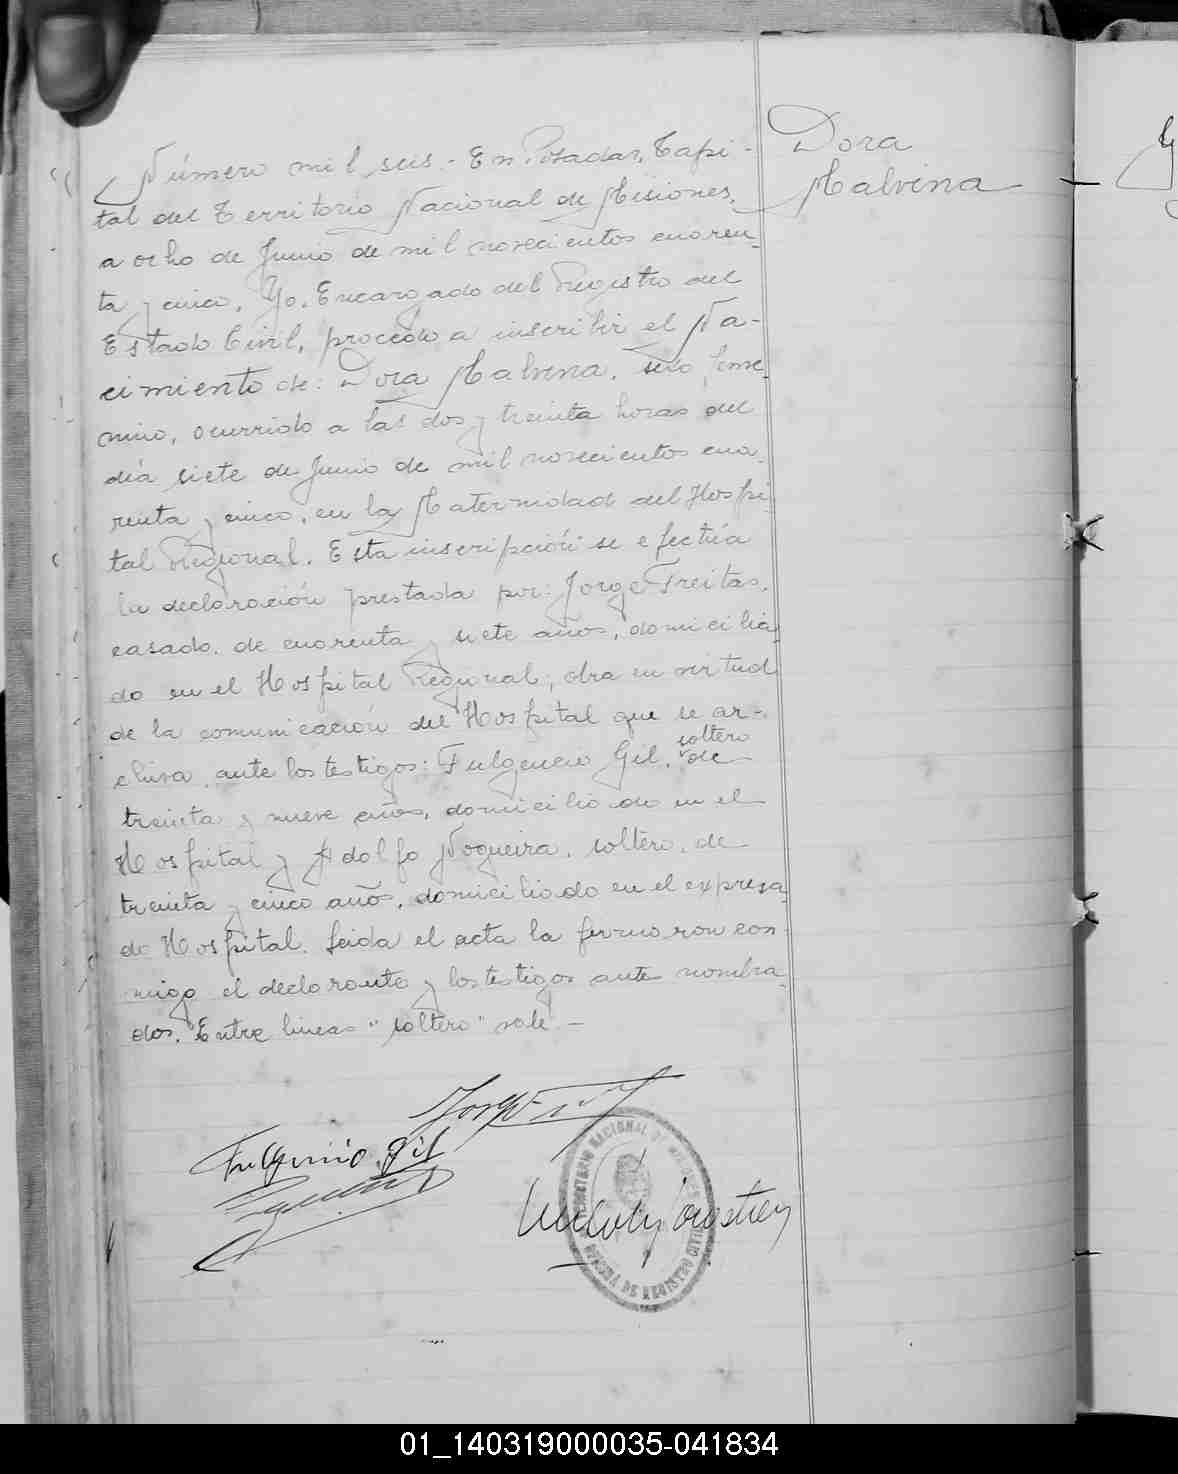 Dora
Malvina
Número mil seis. En Posadas, Capi-
tal del Territorio Nacional de Misiones,
a ocho de Junio de mil novecientos cuaren-
ta y cinco. Yo, Encargado del Registro del
Estado Civil, procedo a inscribir el Na-
cimiento de: Dora Malvina, sexo feme-
nino, ocurrido a las dos y treinta horas del
día siete de Junio de mil novecientos cua-
renta y cinco, en la Maternidad del Hospi-
tal Regional. Esta inscripción se efectúa
la declaración prestada por: Jorge Freitas,
casado, de cuarenta y siete años, domicilia-
do en el Hospital Regional, obra en virtud
de la comunicación del Hospital que se ar-
chiva, ante los testigos: Fulgencio Gil, soltero de
treinta y nueve años, domiciliado en el
Hospital y Adolfo Nogueira, soltero, de
treinta y cinco años, domiciliado en el expresa-
do Hospital. Leida el acta la firmaron con-
migo el declarante y los testigos ante nombra-
dos. Entre lineas "soltero" vale.-
Fulgencio Gil
TERRITORIO NACIONAL DE MISIONES
OFICINA DE REGISTRO CIVIL
01_140319000035-041834